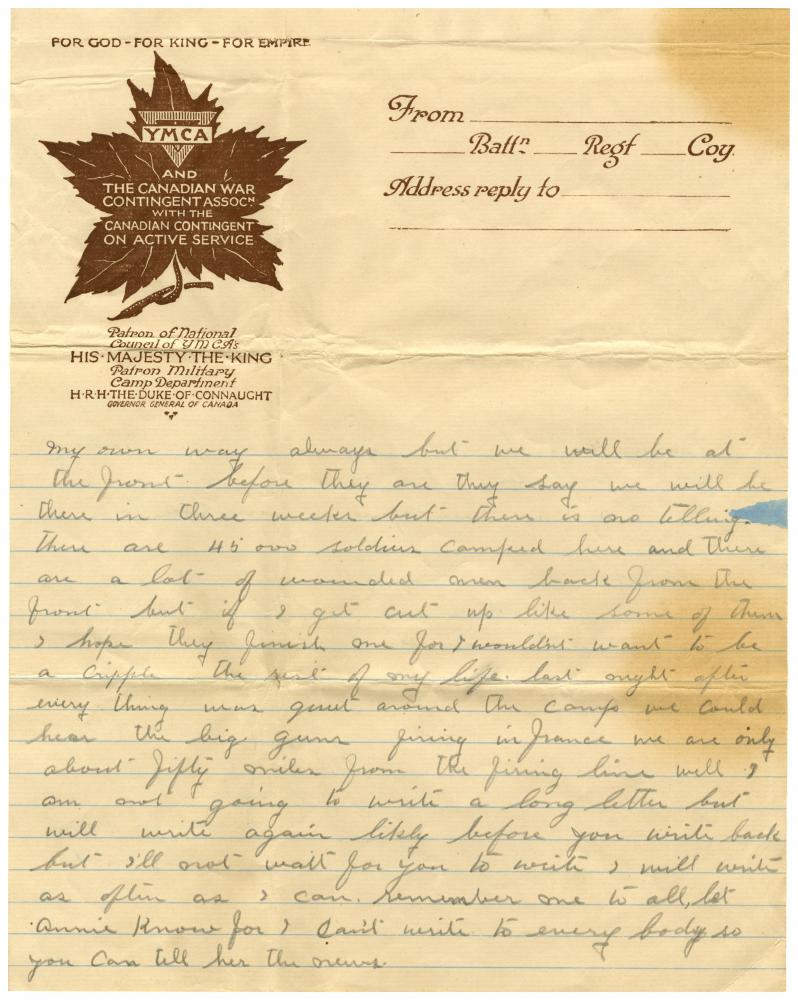 FOR GOD - FOR KING - FOR EMPIRE
YMCA
AND
THE CANADIAN WAR
CONTINGENT ASSOCN
WITH THE
CANADIAN CONTINGENT
ON ACTIVE SERVICE
Patron of National
Council of YMCA's
HIS·MAJESTY·THE·KING
Patron Military
Camp Department
H·R·H·THE·DUKE·OF·CONNAUGHT
GOVERNOR GENERAL OF CANADA
From
Battn Regt Coy
Address reply to
my own way always but we will be at
the front before they are they say we will be
there in three weeks but there is no telling.
there are 45000 soldiers camped here and there
are a lot of wounded men back from the
front but if I get cut up like some of them
I hope they finish me for I wouldn't want to be
a cripple the rest of my life. last night after
every thing was quiet around the camp we could
hear the big guns firing in france we are only
about fifty miles from the firing line well I
am not going to write a long letter but
will write again likely before you write back
but I'll not wait for you to write I will write
as often as I can. remember me to all, let
Annie Know for I can't write to every body so
you can tell her the news.